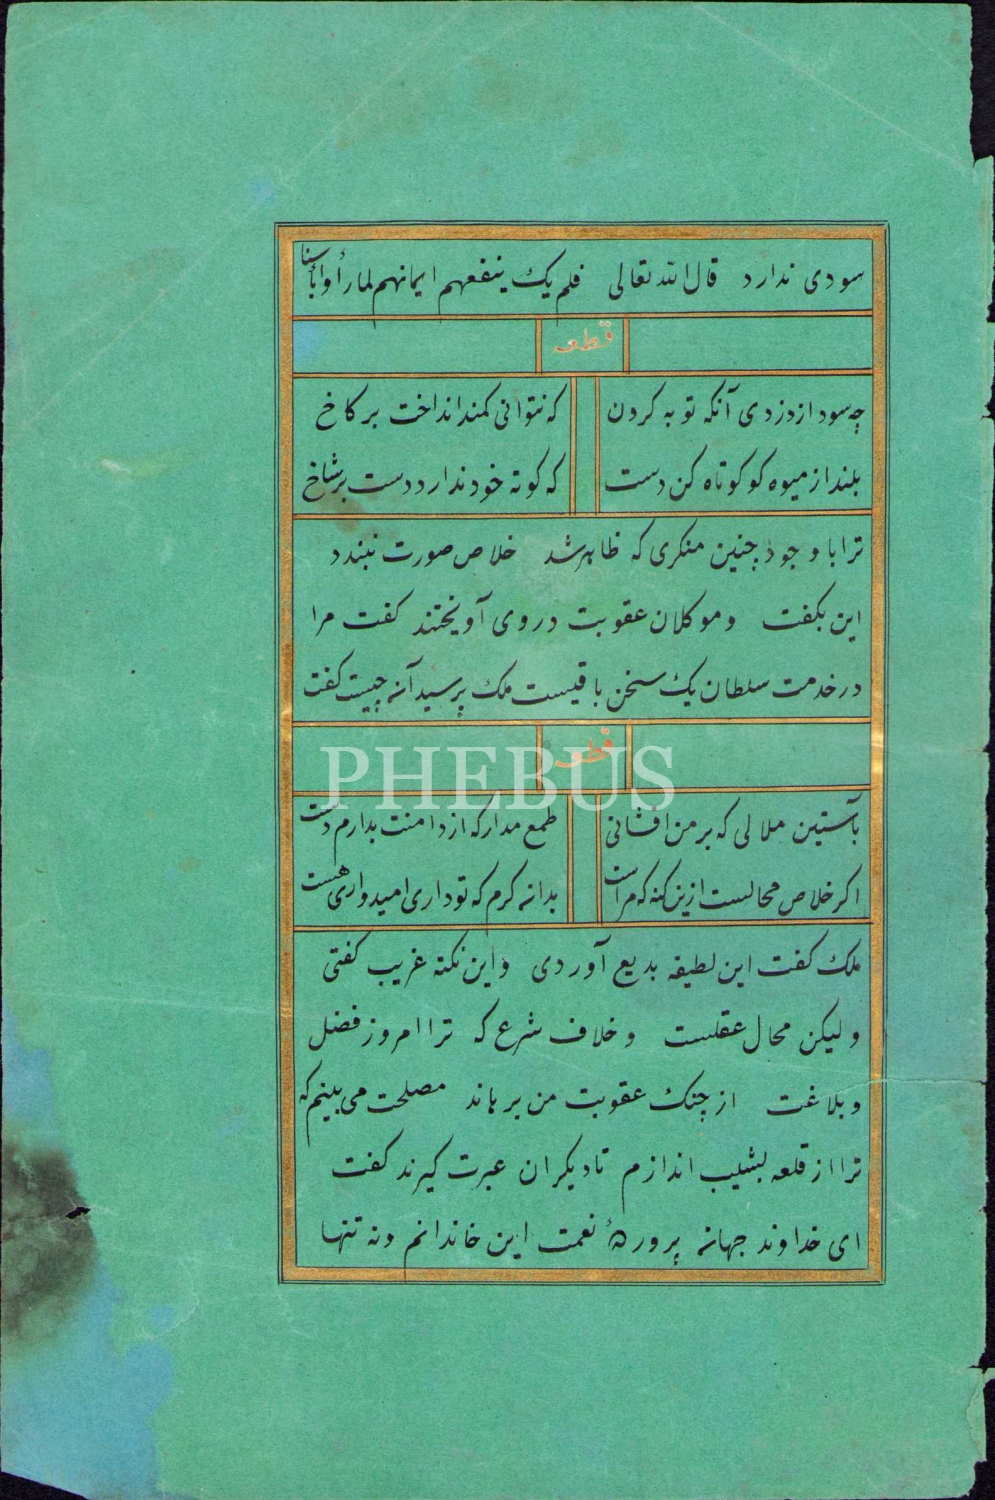 سودی ندارد قال الله تعالی فلم یک ینفعهم ایمانهم لما رأوا بأسنا
قطعه
چه سود از دزدی آنکه توبه کردن که نتوانی کمند انداخت بر کاخ
بلند از میوه کو کوتاه کن دست که کوته خود ندارد دست بر شاخ
ترا با وجود چنین منکری که ظاهر شد خلاص صورت نبندد
این بکفت و موکلان عقوبت در وی آویختند کفت مرا
در خدمت سلطان یک سخن باقیست ملک پرسید آن چیست کفت
قطعه
PHEBUS
بآستین ملالی که بر من افشانی طمع مدار که از دامنت بدارم دست
اکر خلاص محالست ازین کنه که مراست بدان کرم که تو داری امیدواری هست
ملک کفت این لطیفه بدیع آوردی و این نکته غریب کفتی
ولیکن محال عقلست و خلاف شرع که ترا امروز فضل
و بلاغت از چنک عقوبت من برهاند مصلحت می بینم که
ترا از قلعه بشیب اندازم تا دیکران عبرت کیرند کفت
ای خداوند جهان پرورده نعمت این خاندانم و نه تنها